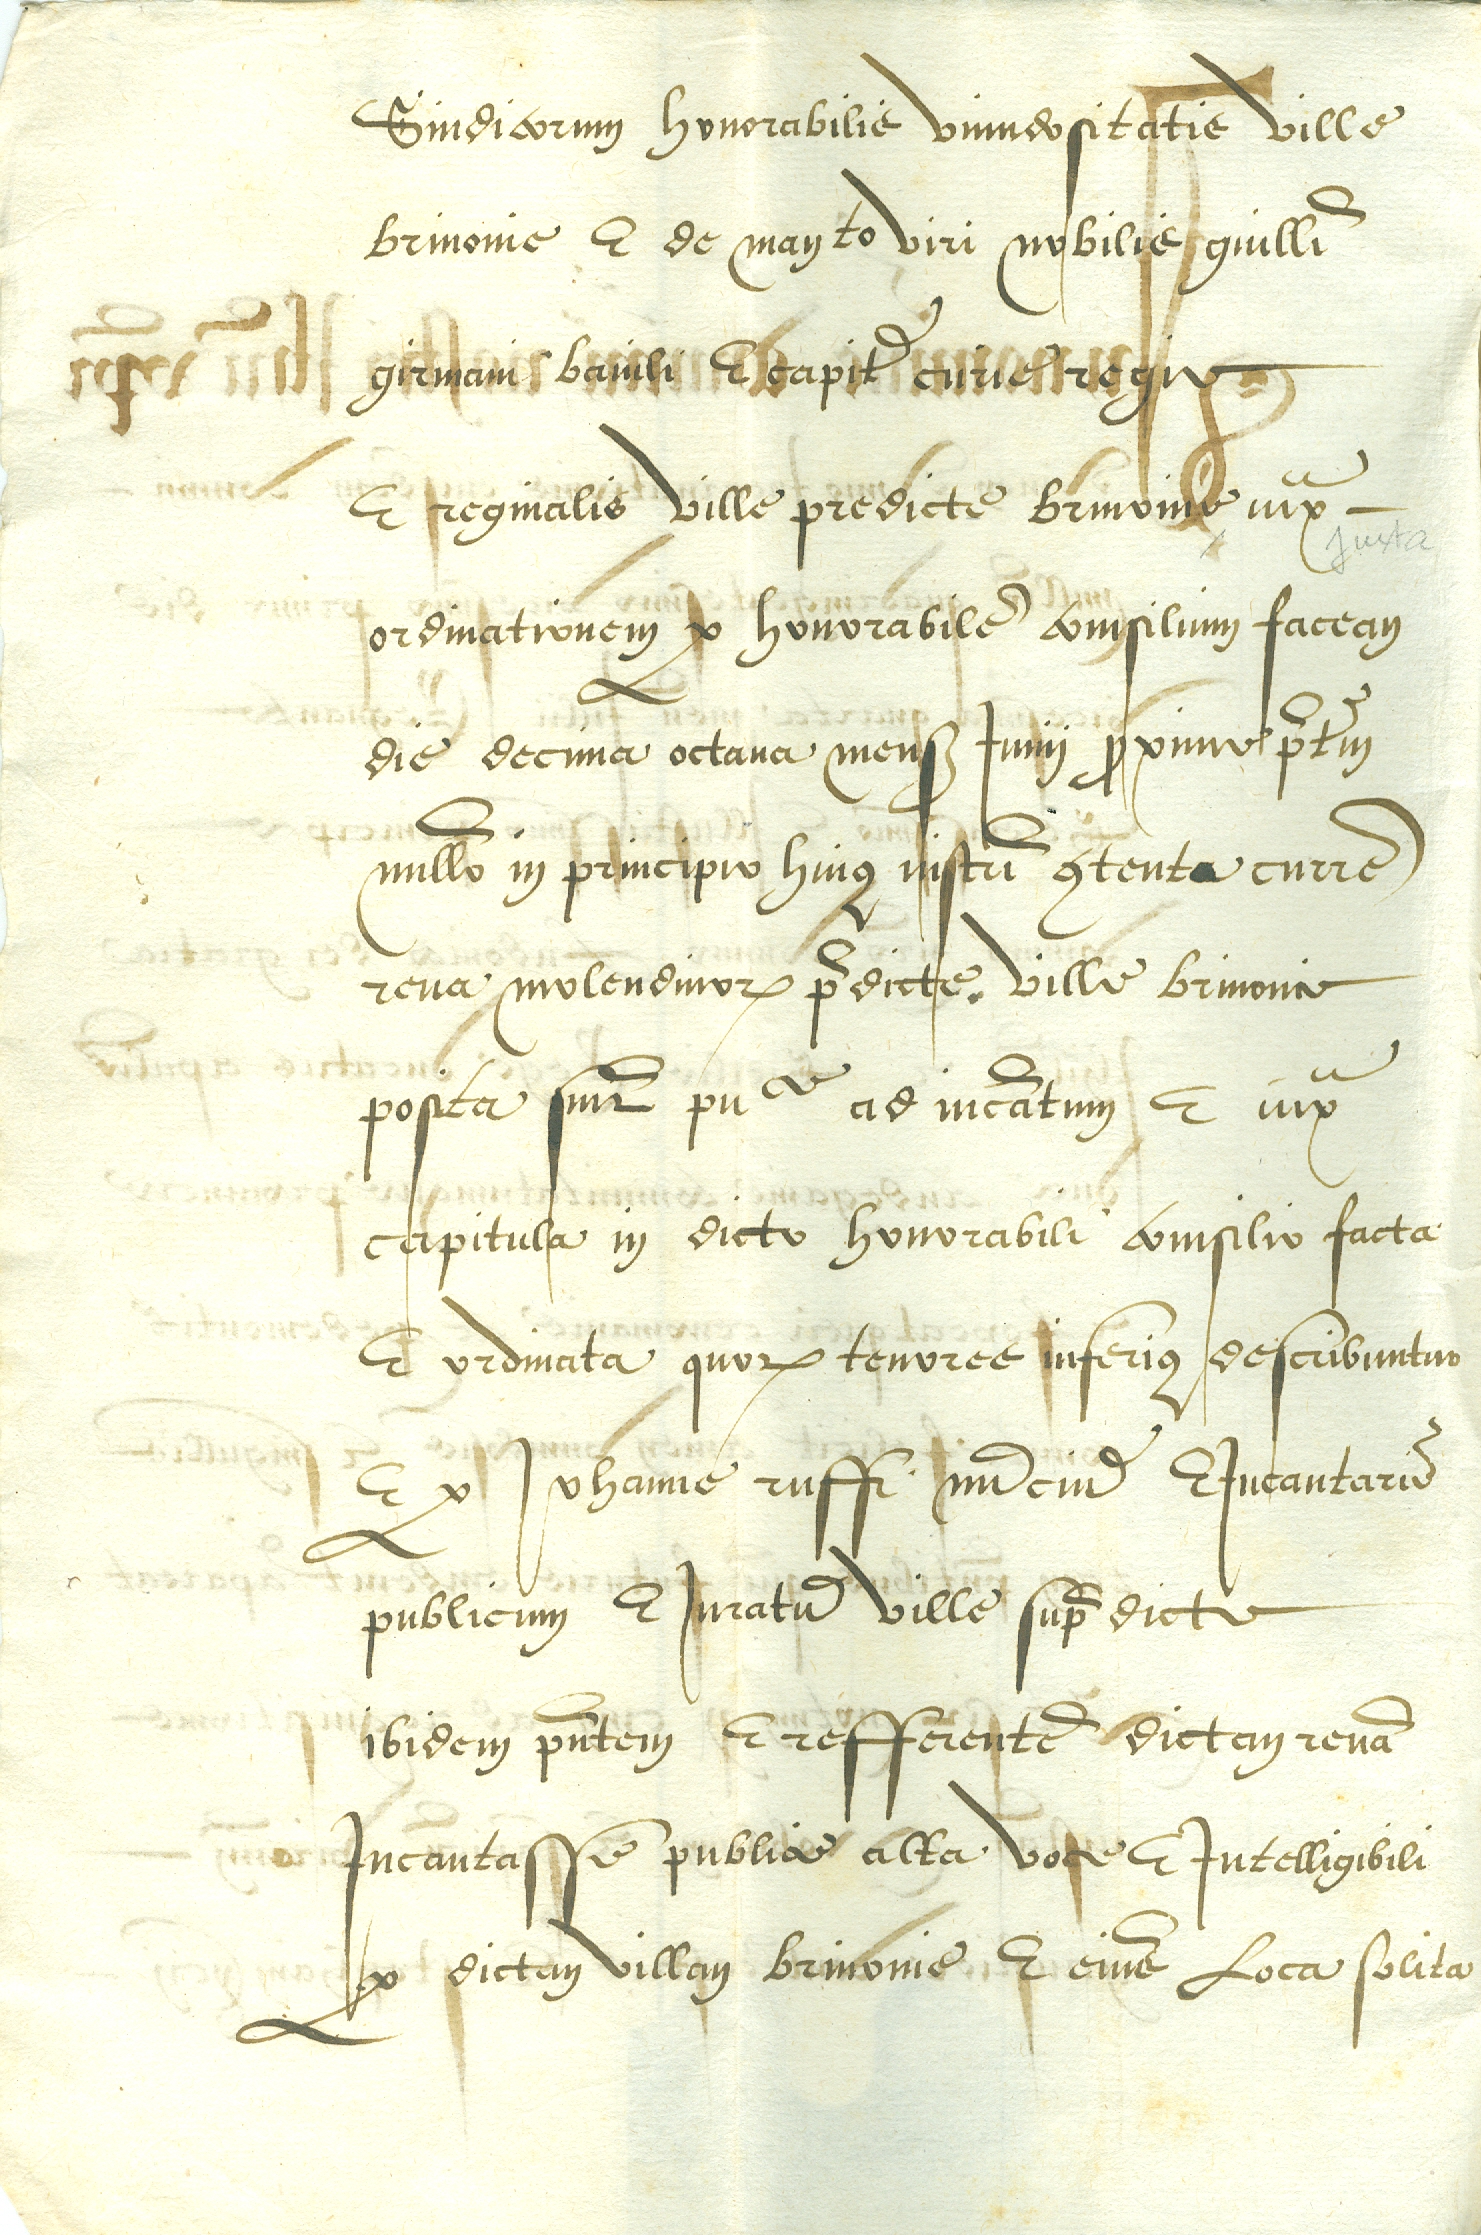 Sindicorum honorabilis universitatis ville
brinonie et de man<sup>to</sup> viri nobilis guill<sup>i</sup>
girmani baiuli et capit curie regie
et reginalis ville predicte brinonie iux<sup>a</sup>
juxta
ordinationem per honorabile consilium factam
die decima octava mens Junii proxime pt<sup>m</sup>
millo in principio huius instri contenta curre
reva molendinor predicte ville brinonie
posita fuit pu<sup>ce</sup> ad incatum et iux<sup>a</sup>
capitula in dicto honorabili consilio facta
et ordinata quor tenores inferius describuntur
et per Johanne ruffi nuciu et Incantariu
publicum et Juratu ville supradicte
ibidem pntem et refferente dictam reva
Incantasse publice alta voce et Intelligibili
per dictam villam brinonie et eius Loca solita